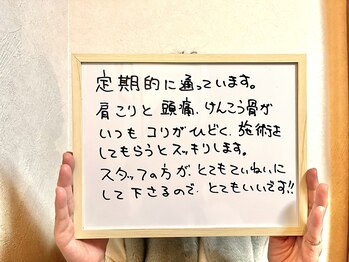 定期的に通っています。
肩こりと頭痛、けんこう骨が
いつもコリがひどく、施術を
してもらうとスッキリします。
スタッフの方が、とてもていねいに
して下さるので、とてもいいです!!